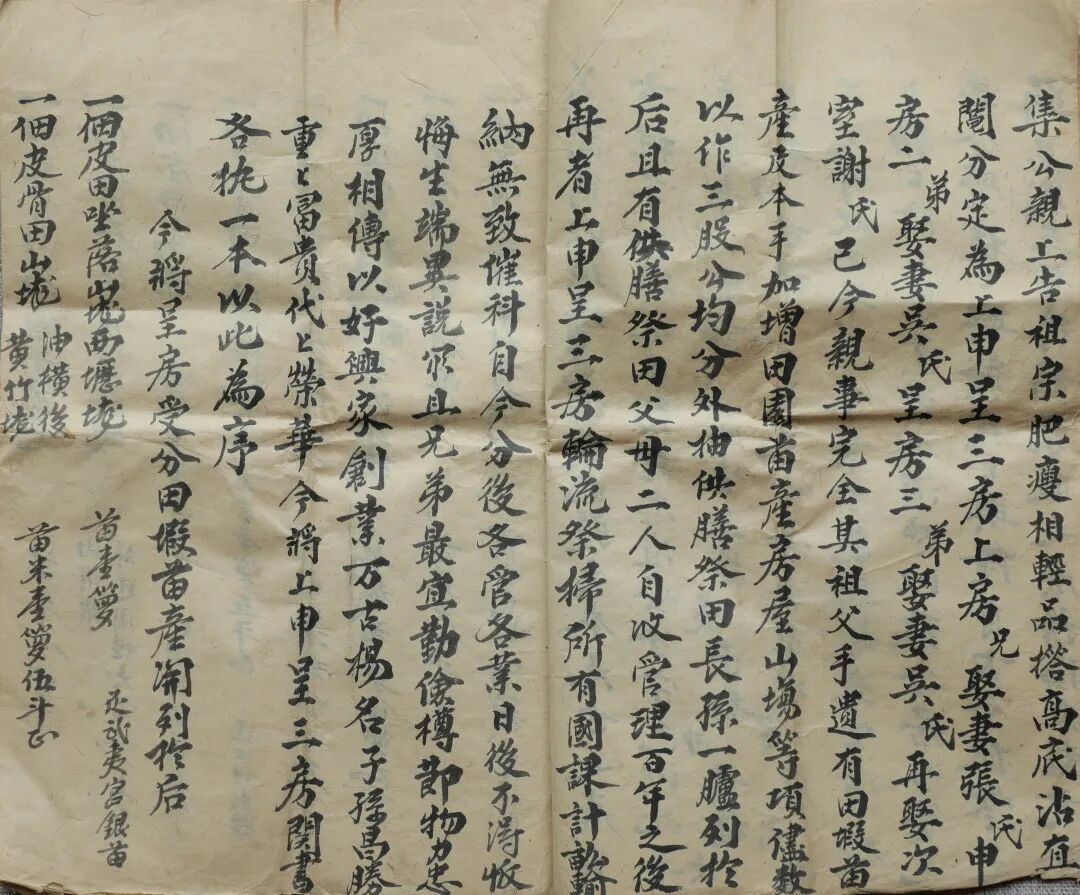 集公親上告祖宗肥瘦相輕品搭高底沾直
鬮分定為上申呈三房上房兄娶妻張氏申
房二弟娶妻吳氏呈房三弟娶妻吳氏再娶次
室謝氏已今親事完全其祖父手遺有田塅苗
產及本手加增田園苗產房屋山塲等項儘数
以作三股公均分外抽供膳祭田長孫一臚列於
后且有供膳祭田父母二人自收管理百年之後
再者上申呈三房輪流祭掃所有國課計畝輸
納無致催科自今分後各管各業日後不得恢
悔生端異說只且兄弟最宜勤儉樽節物力忠
厚相傳以好興家創業万古楊名子孫昌勝
重々富貴代々榮華今將上申呈三房関書
各执一本以此為序
今將呈房受分田塅苗產開列於后
一佃皮田坐落山垅西壢垅 苗壹籮 还武夷宫銀苗
一佃皮骨田山垅 油橫後 黄竹垅 苗米壹籮伍斗正